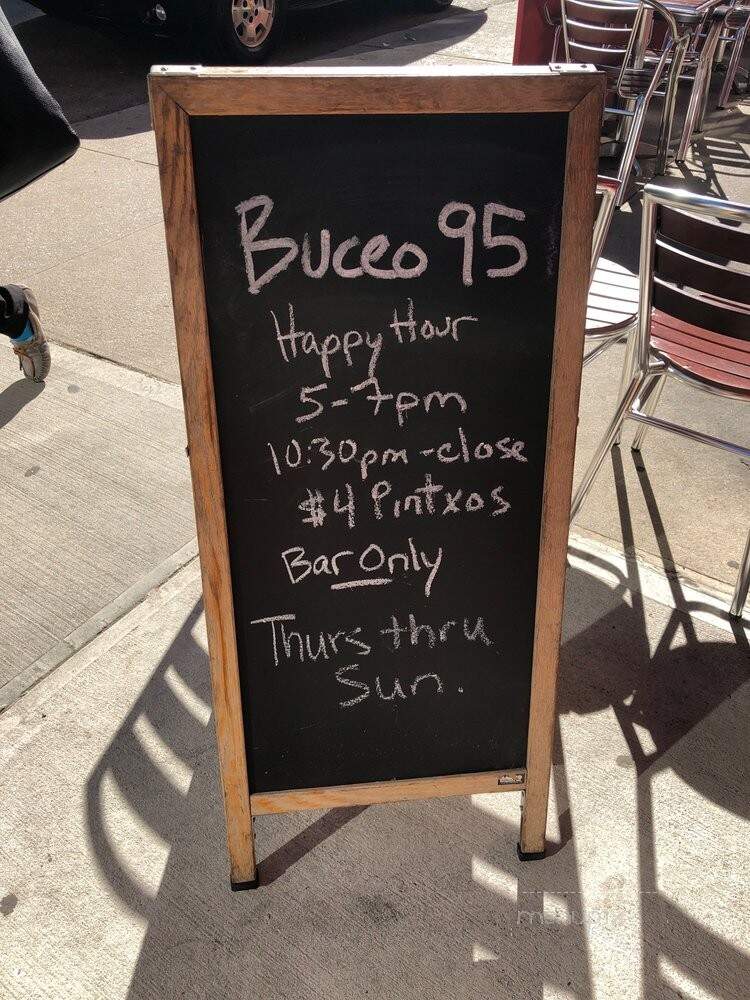 Buceo 95
Happy Hour
5-7pm
10:30pm-close
$4 Pintxos
Bar Only
Thurs thru
Sun.